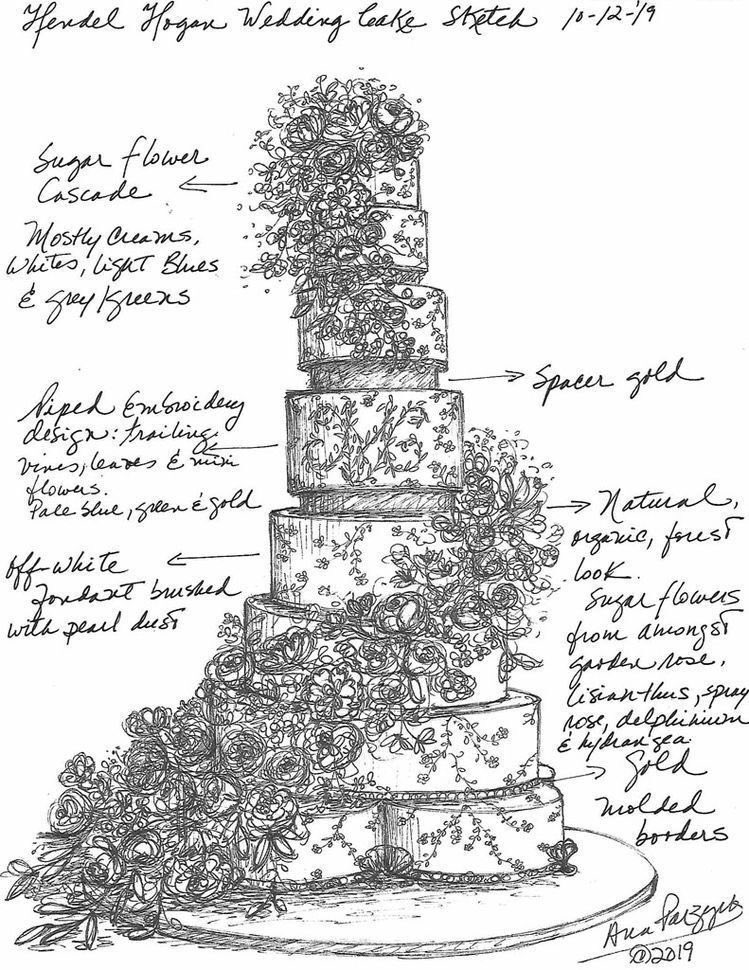 Hendel Hogan Wedding Cake Sketch 10-12-19
Sugar flower
Cascade
Mostly Creams,
Whites, light Blues
& grey/greens
Spacer gold
Piped Embroidery
design: trailing
vines, leaves & mini
flowers.
Pale blue, green & gold
Natural,
organic, forest
look.
Sugar flowers
from amongst
garden rose,
lisianthus, spray
rose, delphinium
& hydrangea
off-white
fondant brushed
with pearl dust
Gold
molded
borders
Ana Parzych
©2019